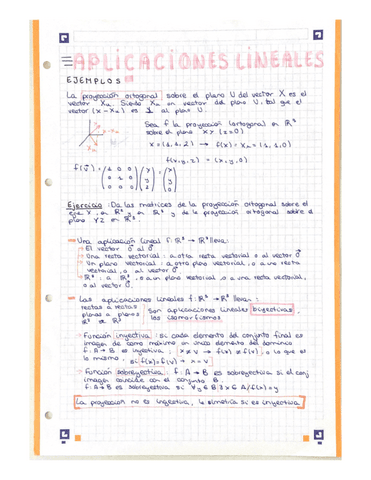 APLICACIONES LINEALES
EJEMPLOS
La proyección ortogonal sobre el plano U del vector X es el
vector Xu. Siendo Xu un vector del plano U, tal que el
vector (X-Xu) es ⊥ al plano U.
Sea f la proyección (ortogonal) en ℝ³
sobre el plano XY (z=0)
x=(1,1,2) → f(x)=Xu=(1,1,0)
f(x,y,z) = (x,y,0)
Ejercicio: Da las matrices de la proyección ortogonal sobre el
eje X, en ℝ², en ℝ³ y de la proyección ortogonal sobre el
plano YZ en ℝ³.
→ Una aplicación lineal f: ℝ³ → ℝ³ lleva:
El vector 0 al 0
Una recta vectorial: a otra recta vectorial o al vector 0
Un plano vectorial: a otro plano vectorial, o a una recta
vectorial, o al vector 0
ℝ³: a ℝ³, o a un plano vectorial, o a una recta vectorial,
o al vector 0.
→ Las aplicaciones lineales f: ℝ³ → ℝ³ llevan:
rectas a rectas
planos a planos
ℝ³ a ℝ³
Son aplicaciones lineales biyectivas,
los isomorfismos
→ Función inyectiva: si cada elemento del conjunto final es
imagen de como máximo un único elemento del dominio
f: A → B es inyectiva; x ≠ v → f(x) ≠ f(v), o lo que es
lo mismo, si f(x)=f(v) → x = v
→ Función sobreyectiva: f: A → B es sobreyectiva si el conj.
imagen coincide con el conjunto B.
f: A → B es sobreyectiva si ∀y ∈ B ∃ x ∈ A / f(x)=y
La proyección no es inyectiva, la simetría si es inyectiva